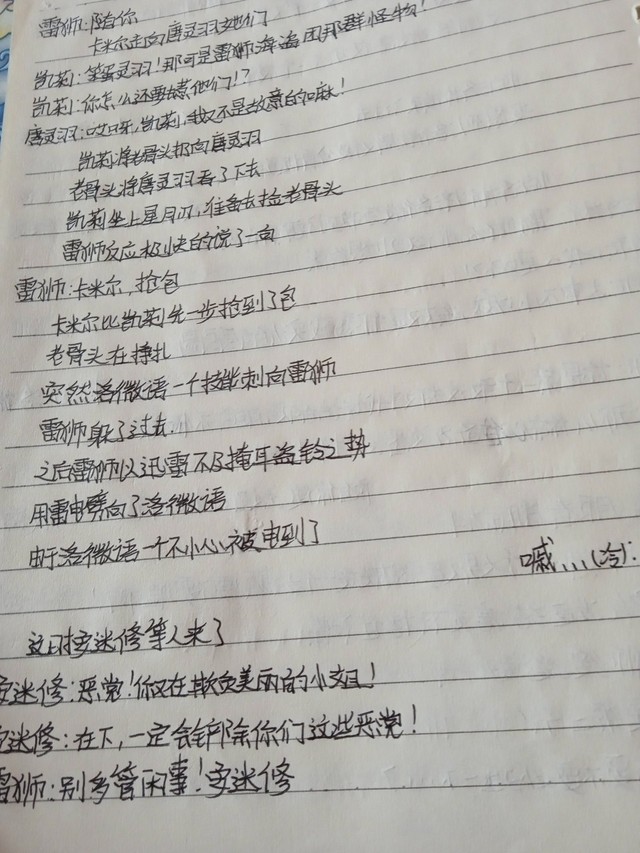 雷狮:随你
卡米尔走向唐灵羽她们
凯莉:笨蛋灵羽!那可是雷狮海盗团那群怪物!
凯莉:你怎么还要去惹他们!?
唐灵羽:哎呀,凯莉,我又不是故意的嘛!
凯莉将老骨头扔向唐灵羽
老骨头将唐灵羽吞了下去
凯莉坐上星月刃,准备去捡老骨头
雷狮反应极快的说了一句
雷狮:卡米尔,抢包
卡米尔比凯莉先一步抢到了包
老骨头在挣扎
突然洛微语一个技能刺向雷狮
雷狮躲了过去.
之后雷狮以迅雷不及掩耳盗铃之势
用雷电劈向了洛微语
由于洛微语一个不小心被电到了
嘁...(冷):
这时安迷修等人来了
安迷修:恶党!你又在欺负美丽的小姐!
安迷修:在下,一定会铲除你们这些恶党!
雷狮:别多管闲事!安迷修